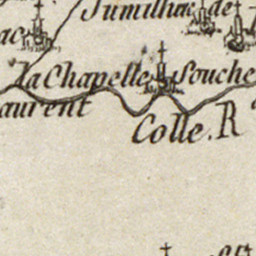 Jumilhac de
ac
la Chapelle Souche
aurent
Colle. R